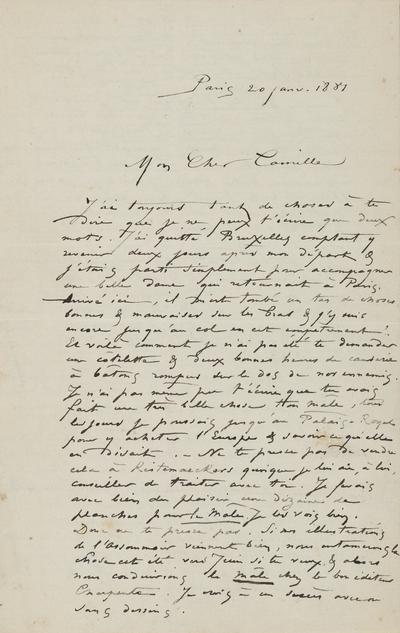 Paris 20 janv. 1881
Mon Cher Camille
J'ai toujours tant de choses à te
dire que je ne peux t'écrire que deux
mots. J'ai quitté Bruxelles comptant y
revenir deux jours après mon départ &
j'étais parti simplement pour accompagner
une belle dame qui retournait à Paris.
Arrivé ici, il m'est tombé un tas de choses
bonnes & mauvaises sur les bras & j'y suis
encore jusqu'au col en cet empêtrement!
Et voilà comment je n'ai pas été te demander
une côtelette & deux bonnes heures de causerie
à bâtons rompus sur le dos de nos ennemis.
Je n'ai pas même pu t'écrire que tu avais
fait une très belle chose ton mâle, tous
les jours je poussais jusqu'au Palais-Royal
pour y acheter l'Europe & savoir ce qu'elle
en disait. - Ne te presse pas de vendre
cela à Kistemaeckers quoique je lui aie, à lui,
conseillé de traiter avec toi. Je ferais
avec bien du plaisir une dizaine de
planches pour le Mâle. Je les vois bien.
Donc ne te presse pas. Si nos illustrations
de l'Assommoir viennent bien, nous entamerons la
chose cet été vers Juin si tu veux, & alors
nous conduirons le mâle chez le bon éditeur
Charpentier. Je crois à un succès avec ou
sans dessins.